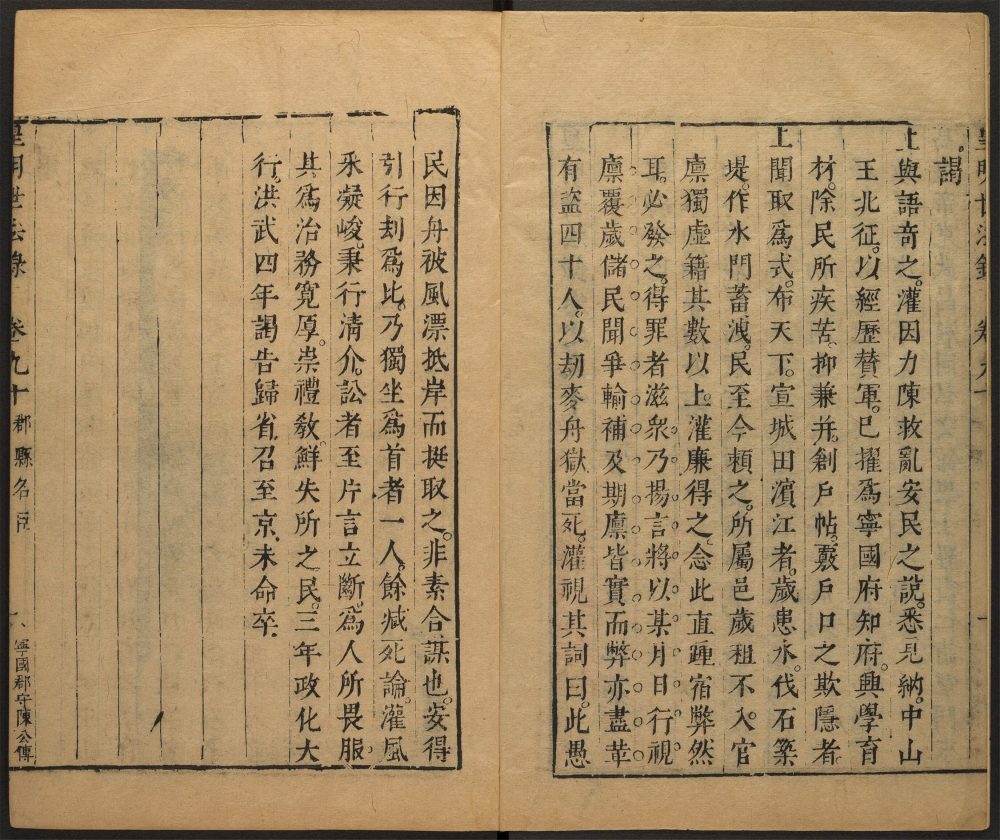 皇明世法錄 卷九十
謁。
上與語奇之。灌因力陳救亂安民之說。悉見納。中山
王北征。以經歷贊軍。已擢爲寧國府知府。興學育
材。除民所疾苦。抑兼并。創戶帖。覈戶口之欺隱者。
上聞取爲式。布天下。宣城田濱江者。歲患水。伐石築
堤。作水門蓄洩。民至今頼之。所屬邑歲租不入官
廪獨虛籍其數以上。灌廉得之。念此直踵宿弊然
耳。必發之。得罪者滋衆。乃揚言將以某月日行視
廪覆歲儲民聞爭輸補及期廪皆實而弊亦盡革
有盜四十人。以劫麥舟獄當死。灌視其詞曰。此愚
民因舟被風漂抵岸而挺取之。非素合謀也。安得
引行刦爲比。乃獨坐爲首者一人。餘減死論。灌風
采凝峻。秉行清介。訟者至片言立斷。爲人所畏服。
其爲治務寬厚。崇禮教。鮮失所之民。三年政化大
行。洪武四年謁告歸省。召至京。未命卒。
皇明世法錄 卷九十 郡縣名臣 八 寧國郡守陳公傳